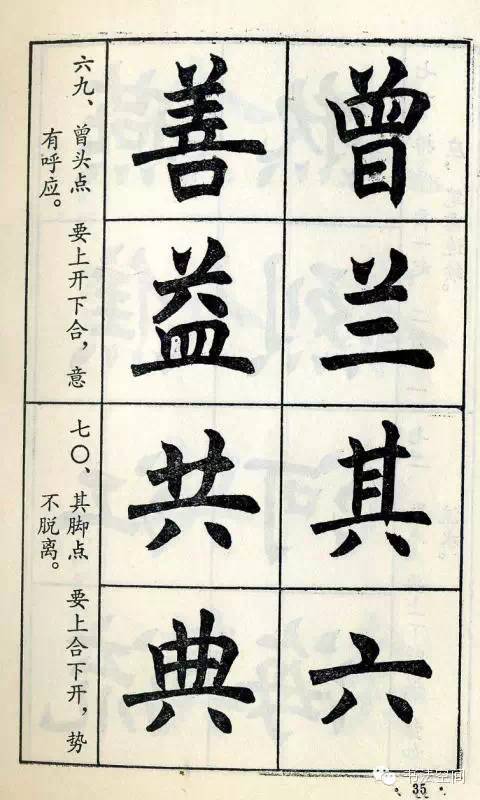 曾
兰
其
六
善
益
共
典
六九、曾头点 要上开下合，意
有呼应。
七〇、其脚点 要上合下开，势
不脱离。
书法空间
· 35 ·